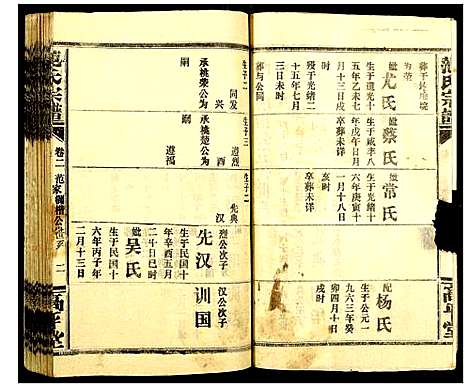 范氏宗谱
高平堂
葬于
为茔
媲尤氏
生于道光十
五年乙未七
月十三日戌
时
殁于光绪二
十五年七月
十二日亥时
葬与公同
媲蔡氏
生于咸丰八
年戊午日月
卒葬未详
媲常氏
生于光绪十
六年庚寅十
一月十八日
卒葬未详
配杨氏
生于公元一
九六三年癸
卯四月十日
戌时
生子二
同发
兴
承桃荣公为
嗣
生子三
遵烈
酉
承桃楚公为
嗣
遵福
生子二
先典
汉
烈公次子
先汉
生于民国十
年辛酉五月
二十日巳时
媲吴氏
生于民国十
六年丙子年
二月十三日
汉公次子
训国
范氏宗谱
卷二
二
高平堂